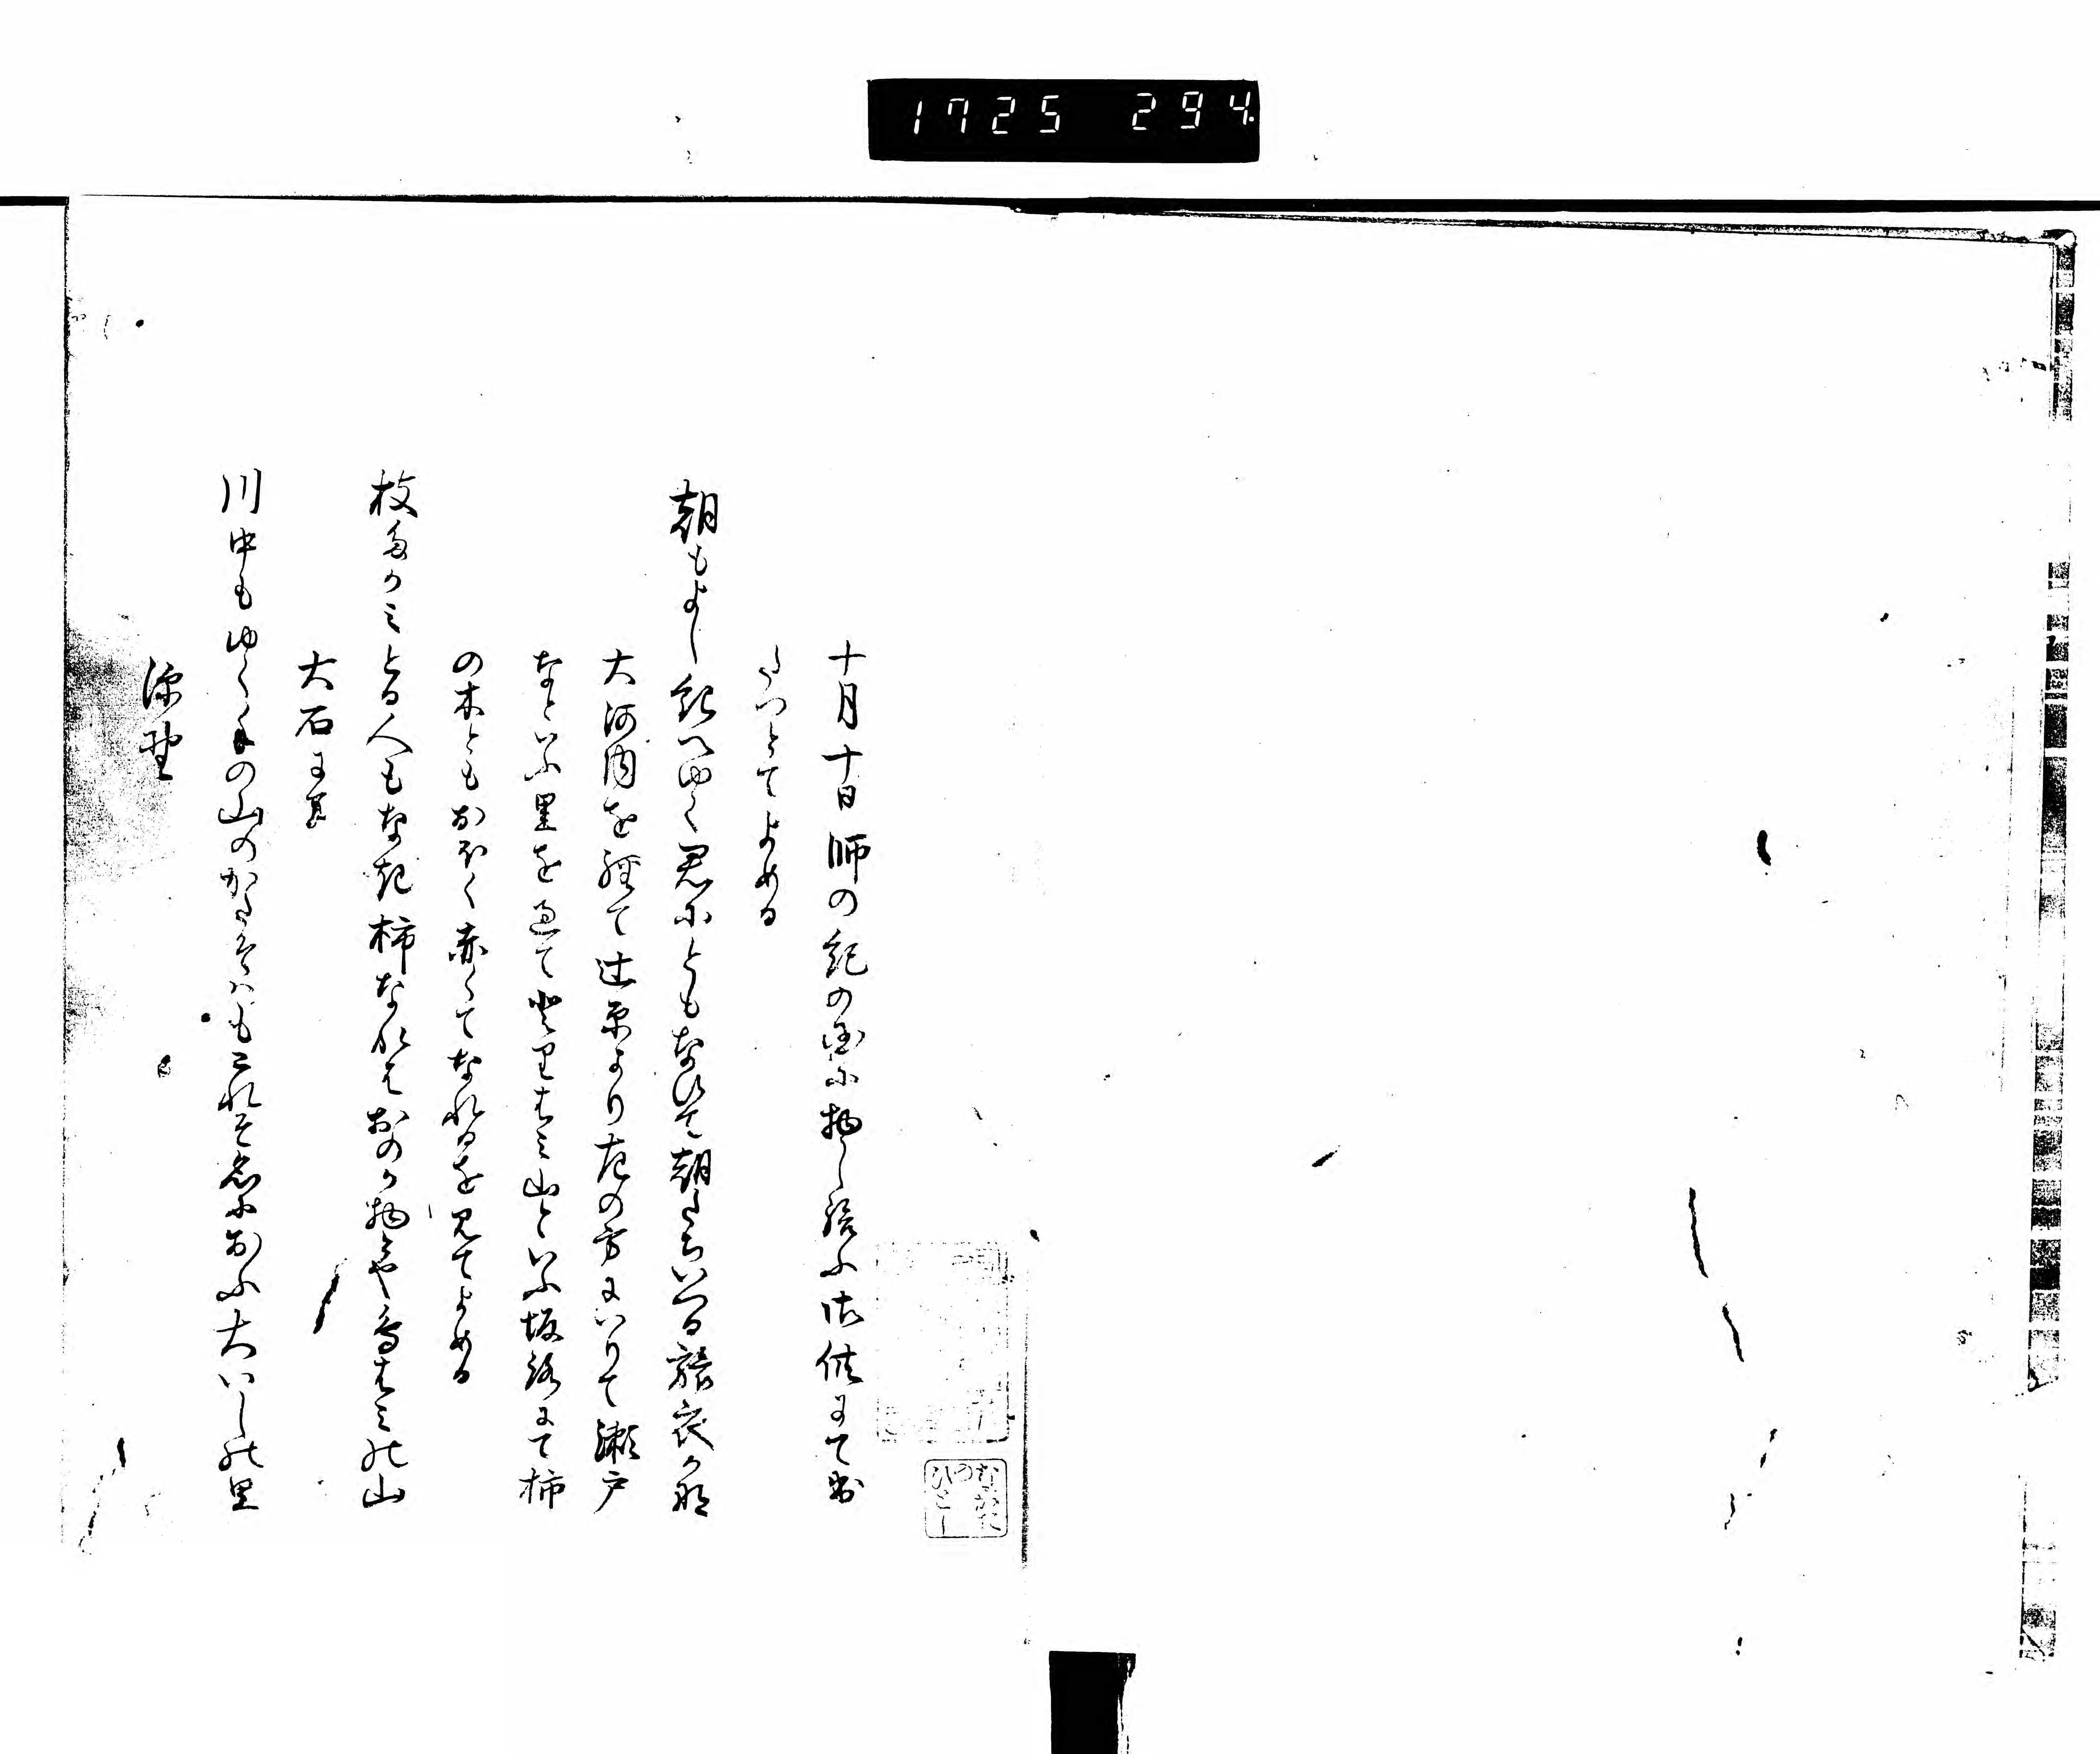 1725 294
十月十日師の紀の国に物し給ふ御供にて出
たつとてよめる
朝もよし紀へゆく君にともなひて朝たちいつる旅衣かな
大河内を経て辻原より左の方にいりて瀬戸
なといふ里を過てとりはみ山といふ坂路にて柿
の木ともおほく赤くてなれるを見てよめる
枝たかみとる人もなき柿なれはおのか物とや鳥はみの山
大石にて
川中もゆくての山のかたそはもこれそ名におふ大いしの里
深野